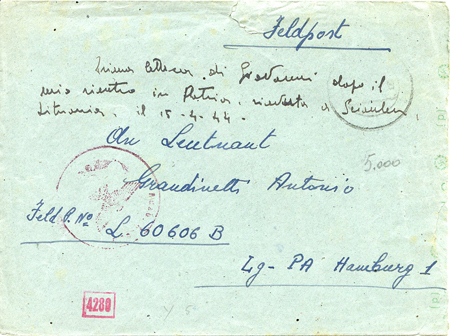 Feldpost
Prima lettera di Giovanni dopo il
mio rientro in Patria, ricevuta a
Lituania, il 15-4-44-
An Leutnant
5.000
Grandinetti Antonio
Feld P. Nº
L 60606 B
Lg-PA Hamburg 1
4280